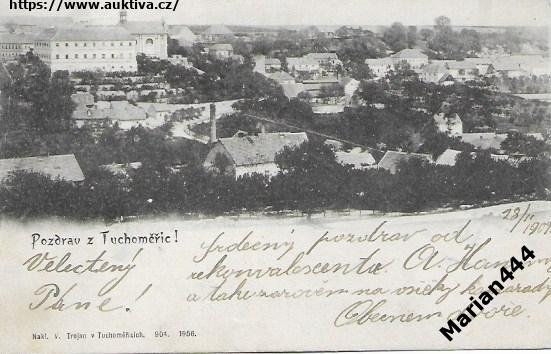 https://www.auktiva.cz/
Pozdrav z Tuchoměřic!
28/II 1901
Velectěný
Pane!
Srdečný pozdrav od
rekonvalescenta. A.
a také zároveň na všicky kamarády
Obecnem
Nakl. V. Trojan v Tuchoměřicích. 904. 1956.
Marian444